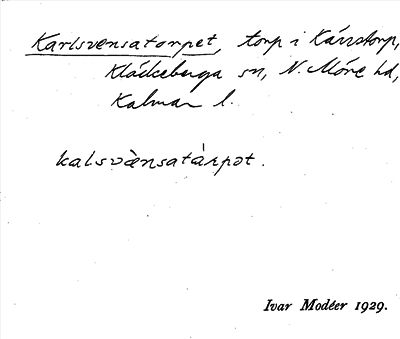 Karlsvensatorpet, torp i Kärrstorp,
Kläckeberga sn, N. Möre hd,
Kalmar l.
kalsvὲnsatàrpot.
Ivar Modéer 1929.